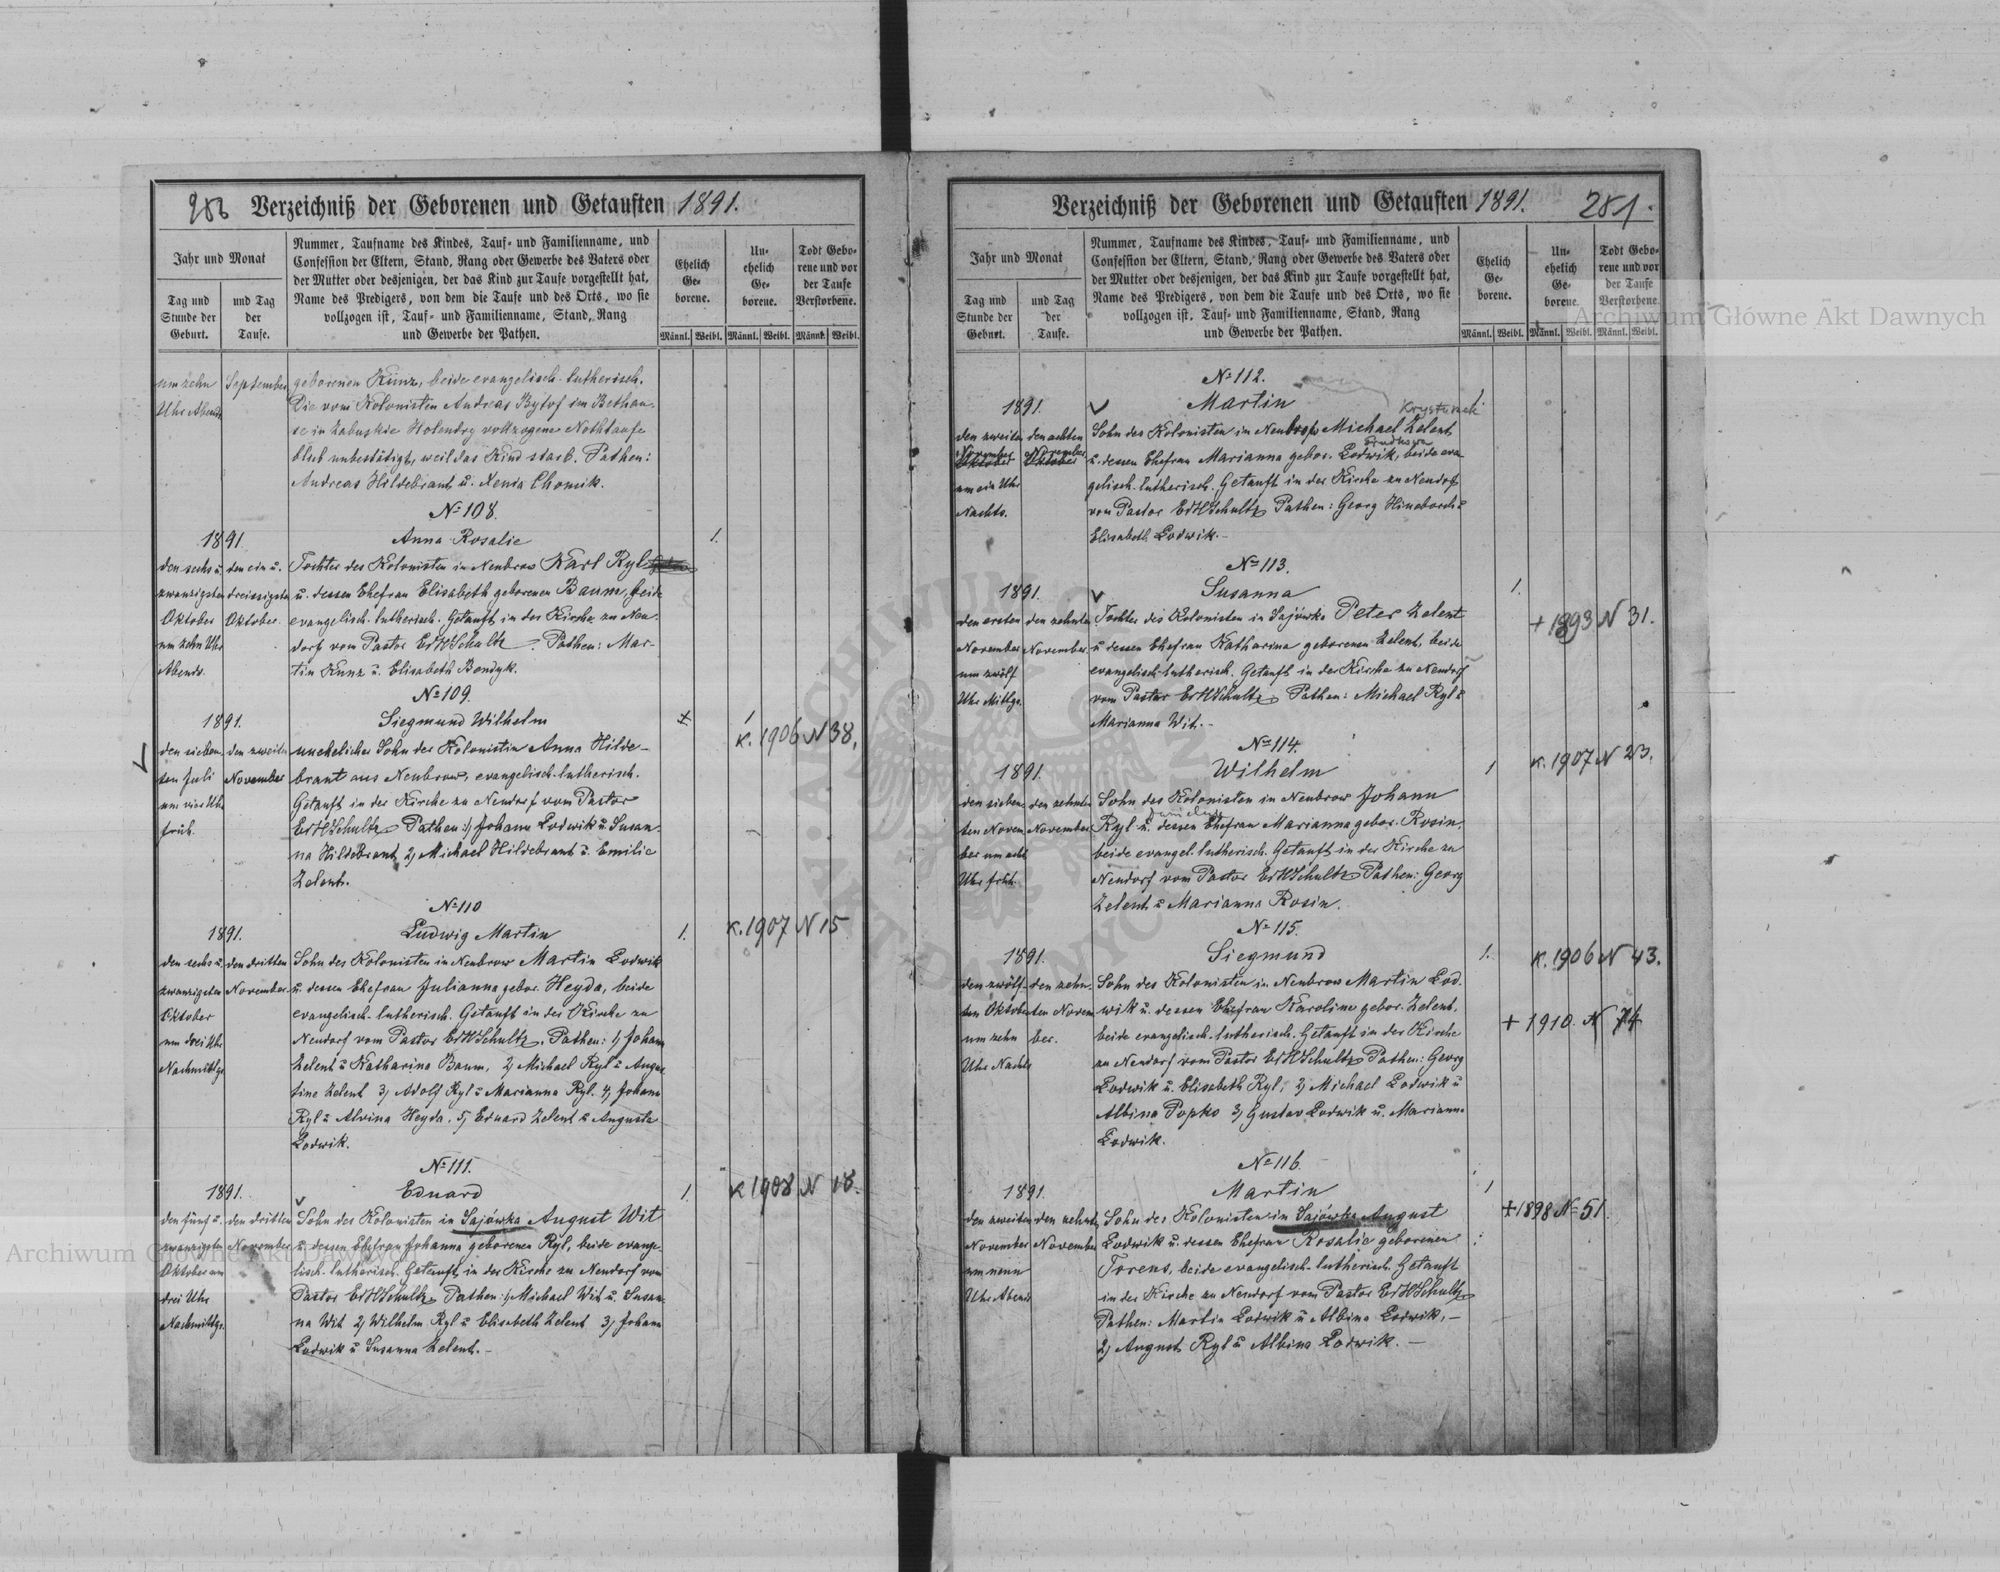 286 Verzeichniß der Geborenen und Getauften 1891.
Jahr und Monat
Tag und Stunde der Geburt.
und Tag der Taufe.
Nummer, Taufname des Kindes, Tauf- und Familienname, und
Confession der Eltern, Stand, Rang oder Gewerbe des Vaters oder
der Mutter oder desjenigen, der das Kind zur Taufe vorgestellt hat,
Name des Predigers, von dem die Taufe und des Orts, wo sie
vollzogen ist, Tauf- und Familienname, Stand, Rang
und Gewerbe der Pathen.
Ehelich Ge- borene.
Un- ehelich Ge- borene.
Todt Gebo- rene und vor der Taufe Verstorbene.
Männl. Weibl. Männl. Weibl. Männl. Weibl.
um zehn September geborenen Kunz, beide evangelisch-lutherisch.
Uhr Abends Die vom Kolonisten Andreas Bytof im Bethau-
se in Zabuskie Holendry vollzogene Nothtaufe
blieb unbestätigt, weil das Kind starb. Pathen:
Andreas Hildebrant u. Xenia Chomik.
№ 108.
1891. Anna Rosalie 1.
den sechs u. den ein u. Tochter des Kolonisten in Neubrow Karl Ryl
zwanzigsten dreissigsten u. dessen Ehefrau Elisabeth geborenen Baum, beide
Oktober Oktober. evangelisch-lutherisch. Getauft in der Kirche zu Neu-
um zehn Uhr dorf vom Pastor EWHSchultz. Pathen: Mar-
Abends. tin Kunz u. Elisabeth Bondyk.
№ 109.
1891. Siegmund Wilhelm 1
K. 1906 N 38.
den sieben- den zweiten unehelicher Sohn der Kolonistin Anna Hilde-
ten Juli November brant aus Neubrow, evangelisch-lutherisch.
um vier Uhr Getauft in der Kirche zu Neudorf vom Pastor
früh. EWHSchultz Pathen: 1, Johann Lodwik u. Susan-
na Hildebrant 2, Michael Hildebrant u. Emilie
Zelent.
№ 110
1891. Ludwig Martin 1. K. 1907 N 15
den sechs u. den dritten Sohn des Kolonisten in Neubrow Martin Lodwik
zwanzigsten November. u. dessen Ehefrau Julianna gebor. Heyda, beide
Oktober evangelisch-lutherisch. Getauft in der Kirche zu
um drei Uhr Neudorf vom Pastor EWHSchultz. Pathen: 1, Johann
Nachmittgs. Zelent u Katharina Baum, 2, Michael Ryl u Augus-
tine Zelent 3, Adolf Ryl u Marianna Ryl. 4, Johann
Ryl u Alvina Heyda. 5, Eduard Zelent u Auguste
Lodwik.
№ 111.
1891. Eduard 1. K 1908 N 18.
den fünf u. den dritten Sohn des Kolonisten in Sajówka August Wit
zwanzigsten November u. dessen Ehefrau Johanna geborenen Ryl, beide evange-
Oktober um lisch-lutherisch. Getauft in der Kirche zu Neudorf vom
drei Uhr Pastor EWHSchultz Pathen: 1, Michael Wit u. Susan-
Nachmittgs. na Wit 2, Wilhelm Ryl u Elisabeth Zelent 3, Johann
Lodwik u Susanna Zelent. –
Verzeichniß der Geborenen und Getauften 1891. 281.
Jahr und Monat
Tag und Stunde der Geburt.
und Tag der Taufe.
Nummer, Taufname des Kindes, Tauf- und Familienname, und
Confession der Eltern, Stand, Rang oder Gewerbe des Vaters oder
der Mutter oder desjenigen, der das Kind zur Taufe vorgestellt hat,
Name des Predigers, von dem die Taufe und des Orts, wo sie
vollzogen ist, Tauf- und Familienname, Stand, Rang
und Gewerbe der Pathen.
Ehelich Ge- borene.
Un- ehelich Ge- borene.
Todt Gebo- rene und vor der Taufe Verstorbene.
Männl. Weibl. Männl. Weibl. Männl. Weibl.
№ 112.
1891. Martin 1
den zweiten den achten Sohn des Kolonisten in Neubrow Michael Zelent
November November
Oktober Oktober u. dessen Ehefrau Marianna gebor. Lodwik, beide evan-
um ein Uhr gelisch-lutherisch. Getauft in der Kirche zu Neudorf
Nachts. vom Pastor EWHSchultz Pathen: Georg Hineborch u
Elisabeth Lodwik. –
№ 113.
1891. Susanna 1.
den ersten den zehnten Tochter des Kolonisten in Sajówka Peter Zelent + 1893 N 31.
November November. u dessen Ehefrau Katharina geborenen Zelent, beide
um zwölf evangelisch-lutherisch. Getauft in der Kirche zu Neudorf
Uhr Mittgs. vom Pastor EWHSchultz Pathen: Michael Ryl u
Marianna Wit. –
№ 114.
1891. Wilhelm 1 K. 1907 N 23.
den sieben- den zehnten Sohn des Kolonisten in Neubrow Johann
ten Novem- November Ryl u. dessen Ehefrau Marianna gebor. Rosin,
ber um acht beide evangel. lutherisch. Getauft in der Kirche zu
Uhr früh. Neudorf vom Pastor EWHSchultz Pathen: Georg
Zelent u Marianna Rosin.
№ 115.
1891. Siegmund 1. K. 1906 N 43.
den zwölf- den zehn- Sohn des Kolonisten in Neubrow Martin Lod-
ten Oktober ten Novem- wik u. dessen Ehefrau Karoline gebor. Zelent, + 1910. N 74
um zehn ber. beide evangelisch-lutherisch. Getauft in der Kirche
Uhr Nachts zu Neudorf vom Pastor EWHSchultz Pathen: Georg
Lodwik u. Elisabeth Ryl, 2, Michael Lodwik u
Albina Popko 3, Gustav Lodwik u. Marianna
Lodwik.
№ 116.
1891. Martin 1
den zweiten den zehnten Sohn des Kolonisten in Sajówka August + 1898 № 51.
November November Lodwik u. dessen Ehefrau Rosalie geborenen
um neun Torens, beide evangelisch-lutherisch. Getauft
Uhr Abends in der Kirche zu Neudorf vom Pastor EWHSchultz
Pathen: Martin Lodwik u Albina Lodwik, –
2, August Ryl u Albina Lodwik. –
Archiwum Główne Akt Dawnych
Archiwum Główne Akt Dawnych